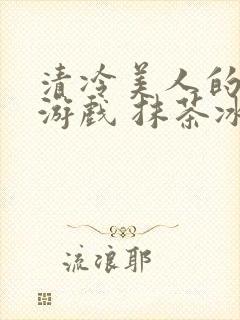 清冷美人的
游戏 抹茶冰
流浪耶